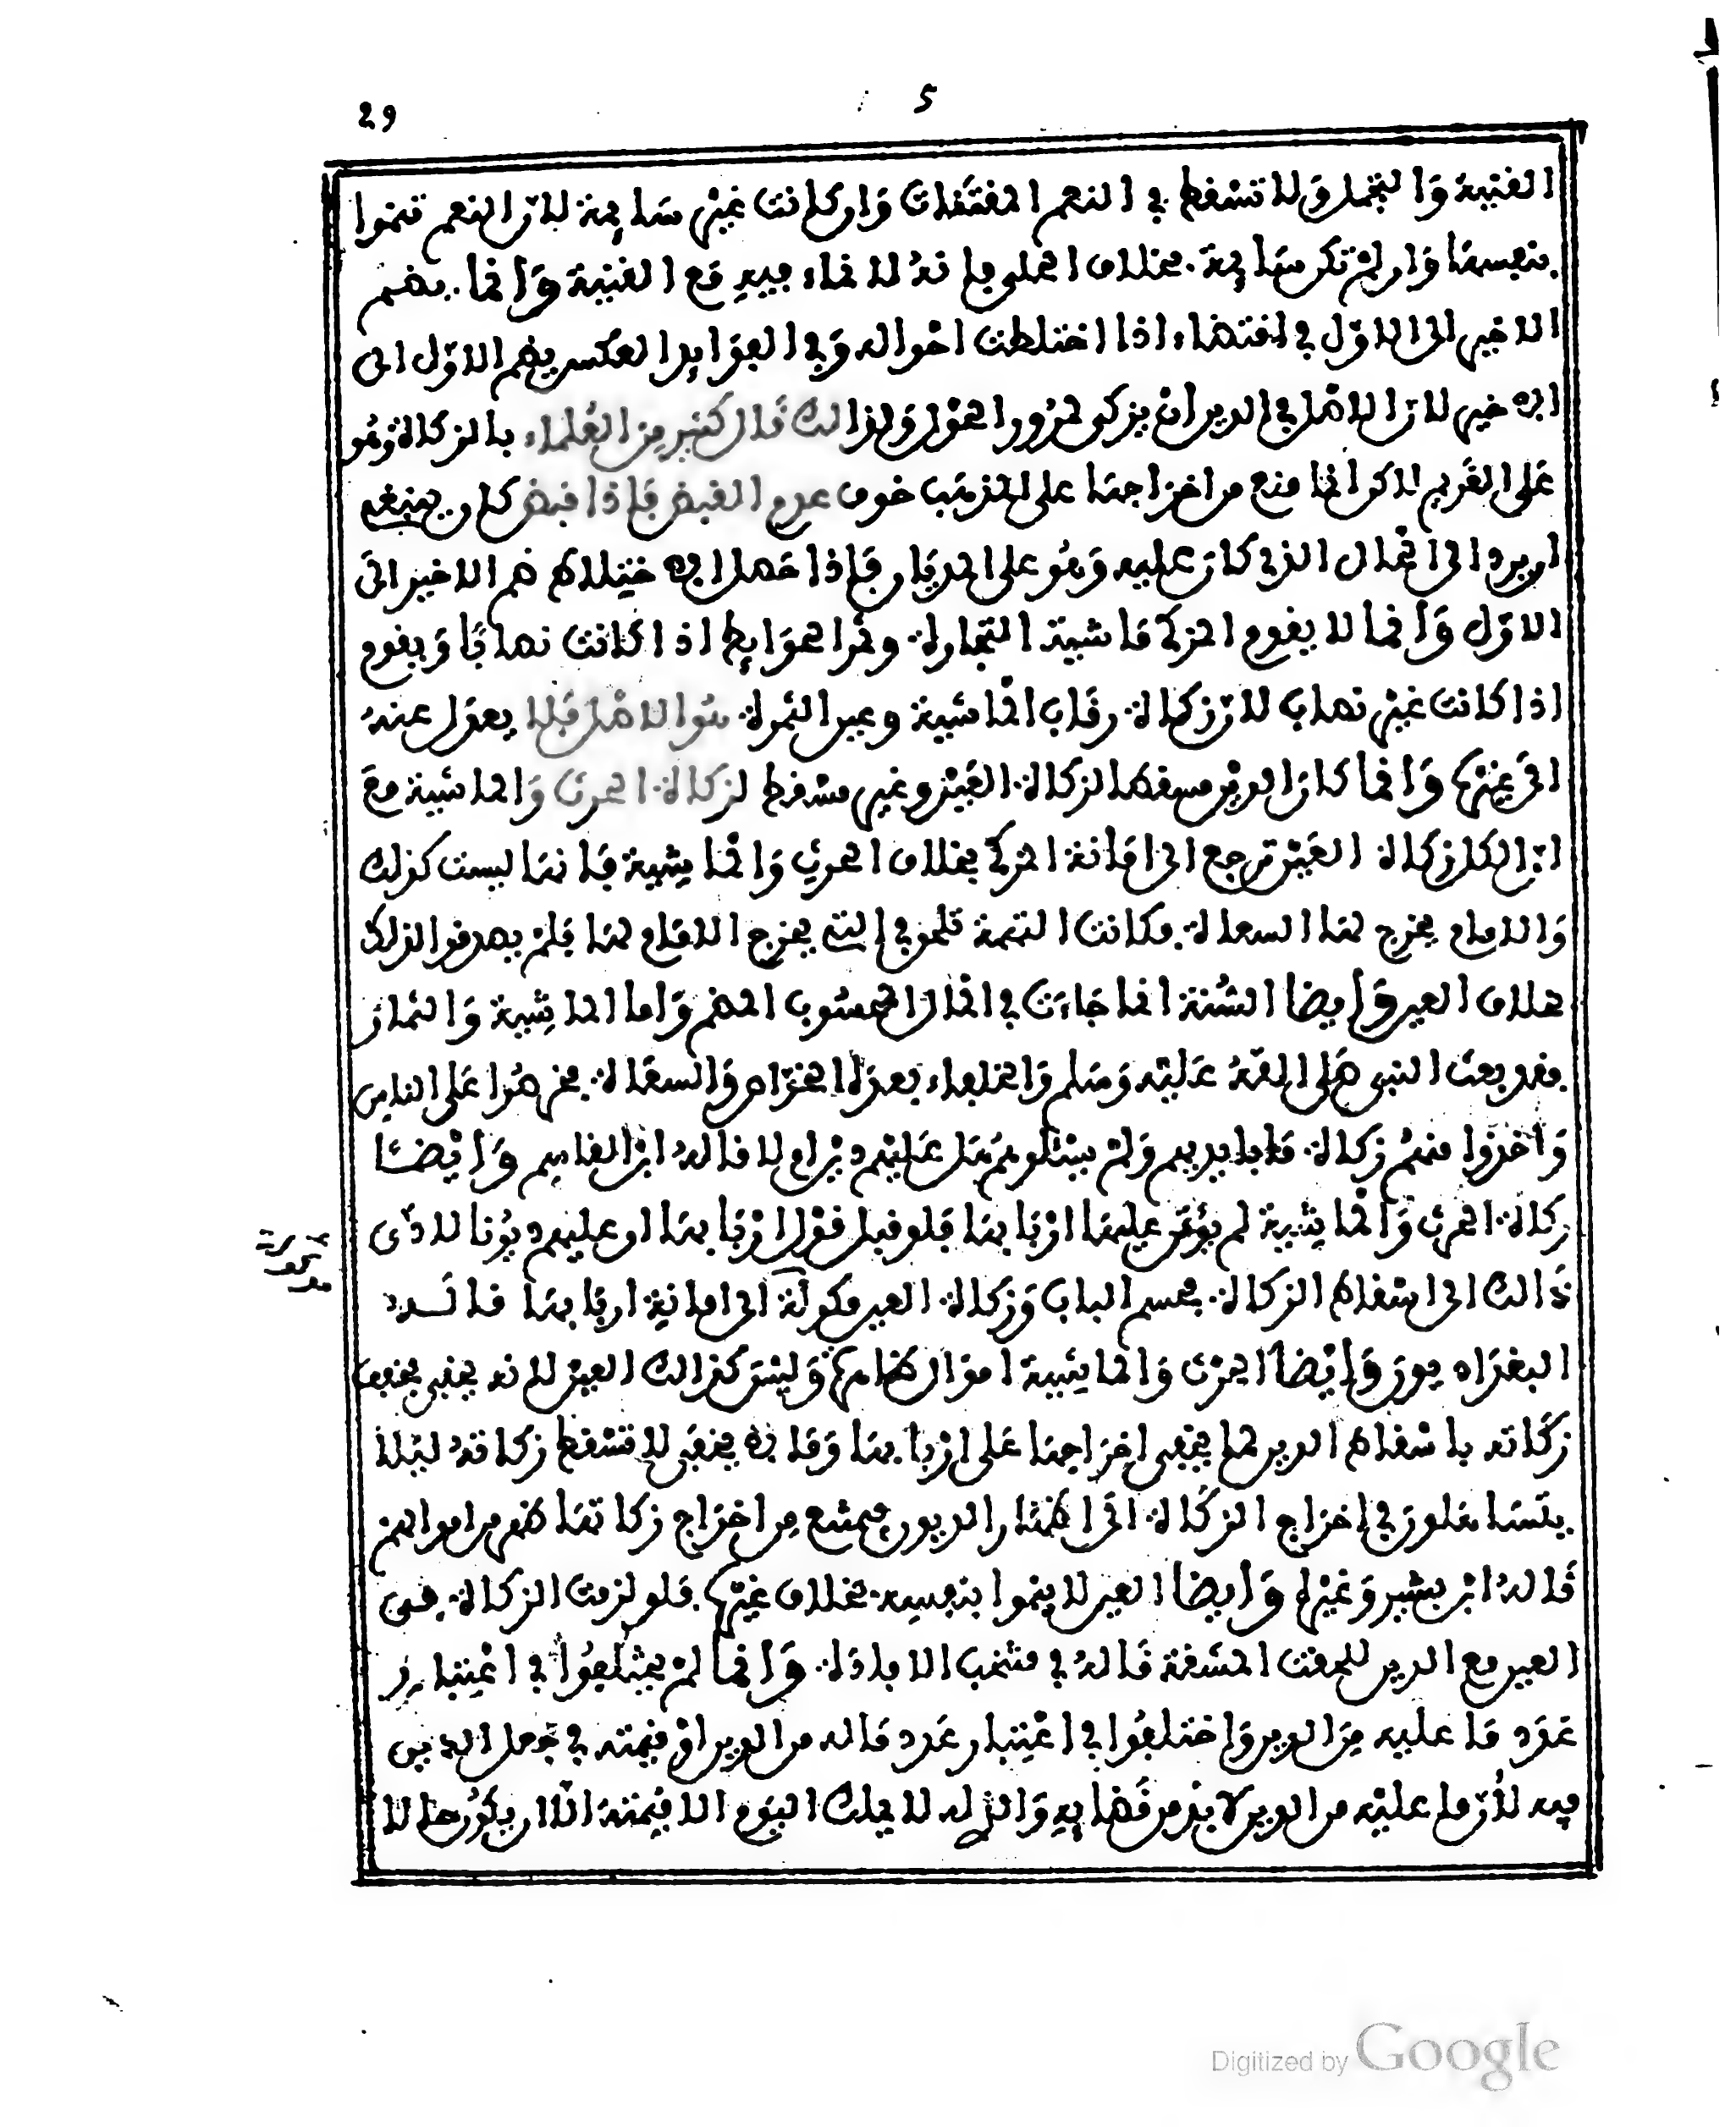 29 5
القنية والتجارة ولا تسقط في النعم المقتناة وان كانت غير سايمة لان النعم تنموا
بنفسها وان لم تكن سايمة بخلاف الحلي فانه لا نماء فيه مع القنية وانما يضم
الاخير الى الاول في اقتضاء اذا اختلطت احواله وفي الفوايد العكس يضم الاول الى
الاخير لان الاصل في الدين ان يزكى لمرور الحول ولذالك قال كثير من العلماء بالزكاة وهو
على الغريم لاكن انما منع من اخراجها على المذهب خوف عدم القبض فاذا قبض كان ينبغي
ان يرد الى الحال الذي كان عليه وهو على المديان فاذا حصل الاختلاط ضم الاخير الى
الاول وانما لا يقوم المزكي ماشية التجارة وثمر الحوايط اذا كانت نصابا ويقوم
اذا كانت غير نصاب لان زكاة رقاب الماشية وعين الثمرة هو الاصل فلا يعدل عنه
الى غيره وانما كان الدين مسقطا لزكاة العين وغير مسقط لزكاة الحرث والماشية مع
ان الكل زكاة العين ترجع الى امانة المزكي بخلاف الحرث والماشية فانها ليست كذلك
والامام يخرج لها السعاة فكانت التهمة تلحق في التي يخرج الامام لها فلم يصدقوا
بخلاف العين وايضا السنة انما جاءت في المال المحسوب الضم واما الماشية والثمار
فقد بعث النبي صلى الله عليه وسلم والخلفاء بعده الخراص والسعاة فخرصوا على الناس
واخذوا منهم زكاة ما بايديهم ولم يسئلوهم هل عليهم دين ام لا قاله ابن القاسم وايضا
زكاة الحرث والماشية لم يؤتمن عليها اربابها فلو قبل قول اربابها ان عليهم ديونا لادى
ذالك الى اسقاط الزكاة فحسم الباب وزكاة العين موكولة الى امانة اربابها قاله
البغداديون وايضا الحرث والماشية اموال ظاهرة وليس كذالك العين لانه يخفى فخفف
زكاته باسقاط الدين لما يخفى اخراجها على اربابها وما لا يخفى لا تسقط زكاته ليلا
يتساهلون في اخراج الزكاة الى اظهار الديون فيمتنع من اخراج زكاتها ضعفا من اموالهم
قاله ابن بشير وغيره وايضا العين لا ينموا بنفسه بخلاف غيره فلو لزمت الزكاة في
العين مع الدين للحقت المشقة قاله في منتخب الافادة وانما لم يختلفوا في اعتبار
عدد ما عليه من الدين واختلفوا في اعتبار عدد ماله من الدين او قيمته في جعل الدين
فيه لان ما عليه من الدين لا بد من قضايه والذي له لا يملك اليوم الا قيمته الا ان يكون حالا